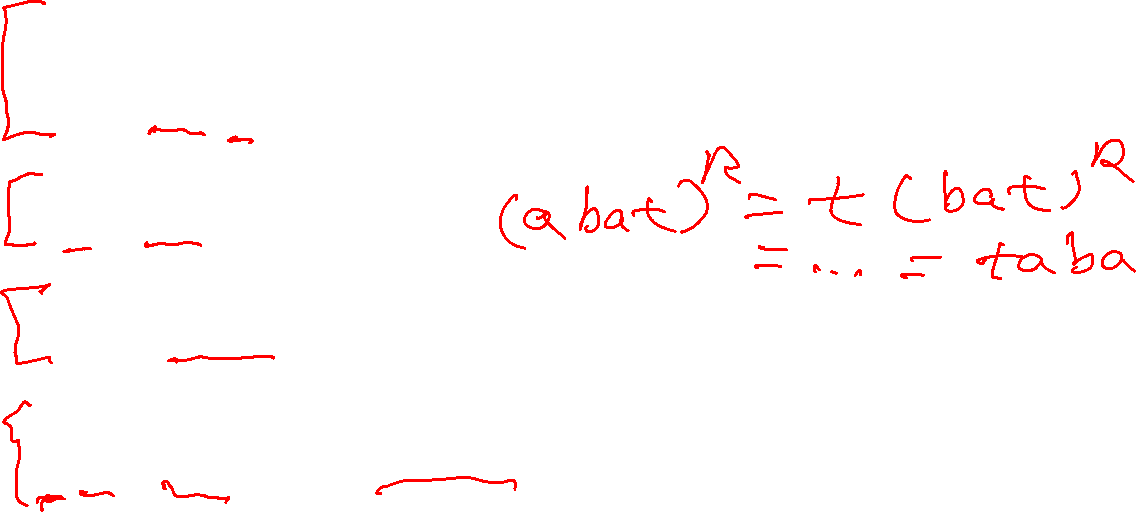 (abat)^R = t (bat)^R
= ... = taba